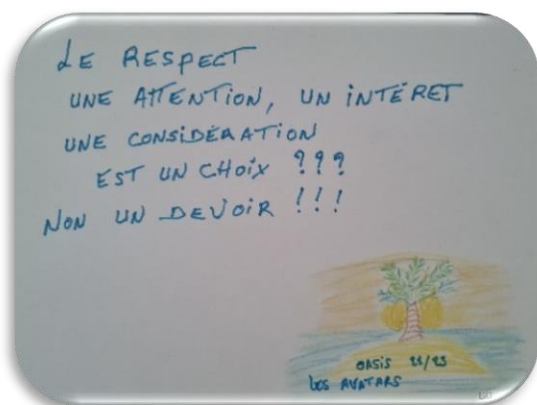 LE RESPECT
UNE ATTENTION, UN INTÉRET
UNE CONSIDÉRATION
EST UN CHOIX ???
NON UN DEVOIR !!!
OASIS 22/23
LES AVATARS